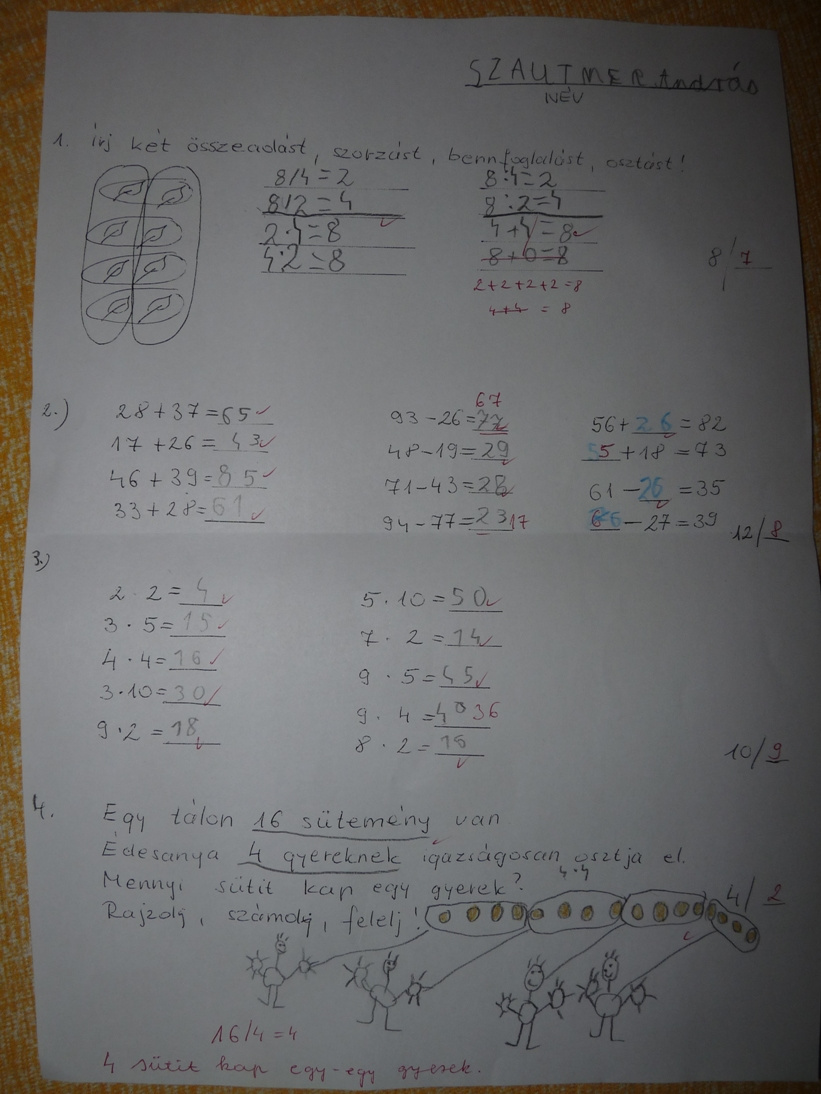 SZAUTMER András
NÉV
1. írj két összeadást, szorzást, bennfoglalást, osztást!
8/4=2 8:4=2
8/2=4 8:2=4
2·4=8 4+4=8
4·2=8 8+0=8
8/7
2+2+2+2=8
4+4 = 8
2.)
67
28+37=65 93-26=77 56+26=82
17+26=43 48-19=29 55+18=73
46+39=85 71-43=28 61-26=35
33+28=61 94-77=23 17 66-27=39
12/8
3.)
2·2=4 5·10=50
3·5=15 7·2=14
4·4=16 9·5=45
3·10=30 9·4=40 36
9·2=18 8·2=16
10/9
4. Egy tálon 16 sütemény van
Édesanya 4 gyereknek igazságosan osztja el.
Mennyi sütit kap egy gyerek? 4·4
Rajzolj, számolj, felelj! 4/2
16/4=4
4 sütit kap egy-egy gyerek.